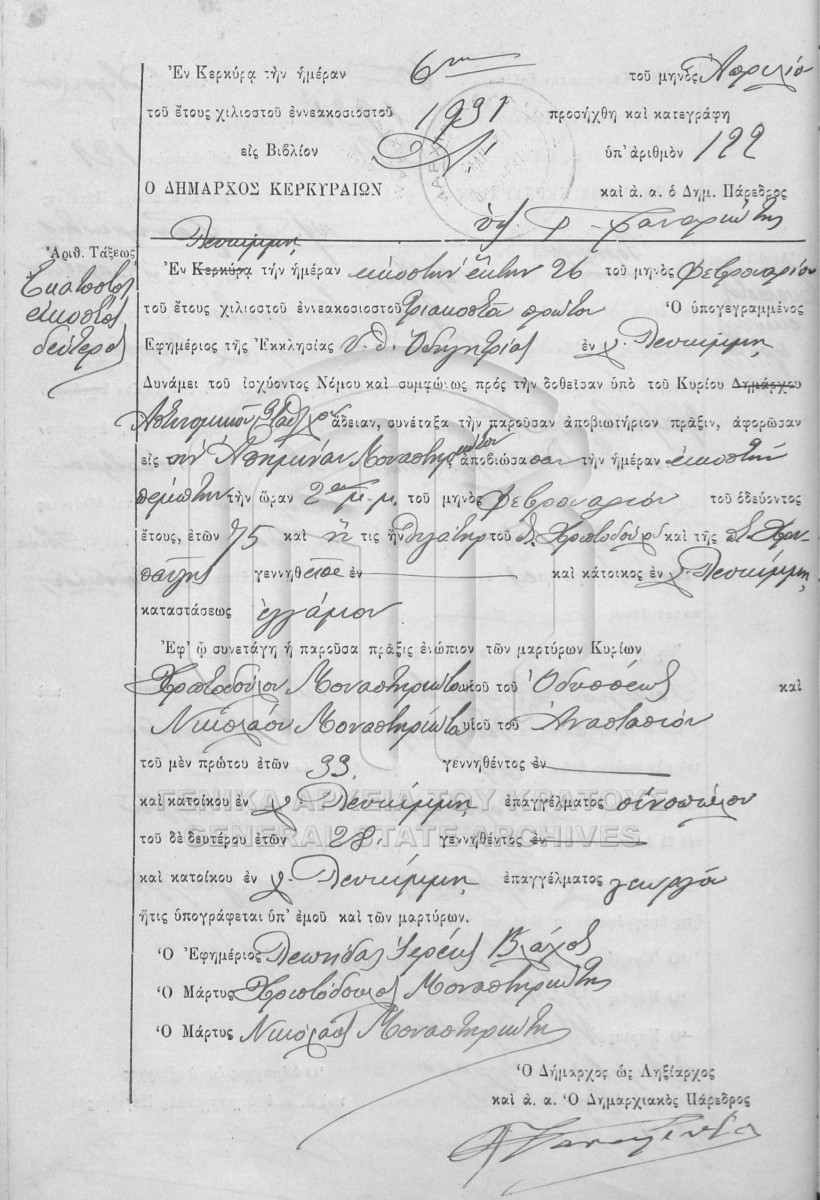 Ἐν Κερκύρᾳ τὴν ἡμέραν 6ην τοῦ μηνὸς Ἀπριλίου
τοῦ ἔτους χιλιοστοῦ ἐννεακοσιοστοῦ 1931 προσήχθη καὶ κατεγράφη
εἰς Βιβλίον Δ! ὑπ' ἀριθμὸν 122
Ο ΔΗΜΑΡΧΟΣ ΚΕΡΚΥΡΑΙΩΝ καὶ ἀ. α. ὁ Δημ. Πάρεδρος
Λευκίμμῃ
Ἀριθ. Τάξεως
Ἑκατοστὸς
εἰκοστὸς
δεύτερος
Ἐν Κερκύρᾳ τὴν ἡμέραν εἰκοστὴν ἕκτην 26 τοῦ μηνὸς Φεβρουαρίου
τοῦ ἔτους χιλιοστοῦ ἐννεακοσιοστοῦ τριακοστοῦ πρώτου Ὁ ὑπογεγραμμένος
Ἐφημέριος τῆς Ἐκκλησίας Υ. Θ. Ὁδηγητρίας ἐν χ. Λευκίμμῃ
Δυνάμει τοῦ ἰσχύοντος Νόμου καὶ συμφώνως πρὸς τὴν δοθεῖσαν ὑπὸ τοῦ Κυρίου Δημάρχου
Ἀστυνομικοῦ Σταθμάρχου ἄδειαν, συνέταξα τὴν παροῦσαν ἀποβιωτήριον πρᾶξιν, ἀφορῶσαν
εἰς τὴν Μοναστηριώτου ἀποβιώσασαν τὴν ἡμέραν εἰκοστὴν
πέμπτην τὴν ὥραν 2αν μ.μ. τοῦ μηνὸς Φεβρουαρίου τοῦ ὁδεύοντος
ἔτους, ἐτῶν 75 καὶ ἥ τις ἦν θυγάτηρ τοῦ Χριστοδούλου καὶ τῆς
γεννηθεῖσα ἐν καὶ κάτοικος ἐν χ. Λευκίμμῃ
καταστάσεως ἐγγάμου
Ἐφ' ᾧ συνετάγη ἡ παροῦσα πρᾶξις ἐνώπιον τῶν μαρτύρων Κυρίων
Χριστοδούλου Μοναστηριώτου υἱοῦ τοῦ Ὀδυσσέως καὶ
Νικολάου Μοναστηριώτου υἱοῦ τοῦ Ἀναστασίου
τοῦ μὲν πρώτου ἐτῶν 33. γεννηθέντος ἐν
καὶ κατοίκου ἐν χ. Λευκίμμῃ ἐπαγγέλματος οἰνοπώλου
τοῦ δὲ δευτέρου ἐτῶν 28. γεννηθέντος ἐν
καὶ κατοίκου ἐν χ. Λευκίμμῃ ἐπαγγέλματος γεωργοῦ
ἥτις ὑπογράφεται ὑπ' ἐμοῦ καὶ τῶν μαρτύρων.
Ὁ Ἐφημέριος Λεωνίδας Ἱερεὺς Βλάχος
Ὁ Μάρτυς Χριστόδουλος Μοναστηριώτης
Ὁ Μάρτυς Νικόλαος Μοναστηριώτης
Ὁ Δήμαρχος ὡς Ληξίαρχος
καὶ ἀ. α. Ὁ Δημαρχιακὸς Πάρεδρος
ΓΕΝΙΚΑ ΑΡΧΕΙΑ ΤΟΥ ΚΡΑΤΟΥΣ
GENERAL STATE ARCHIVES